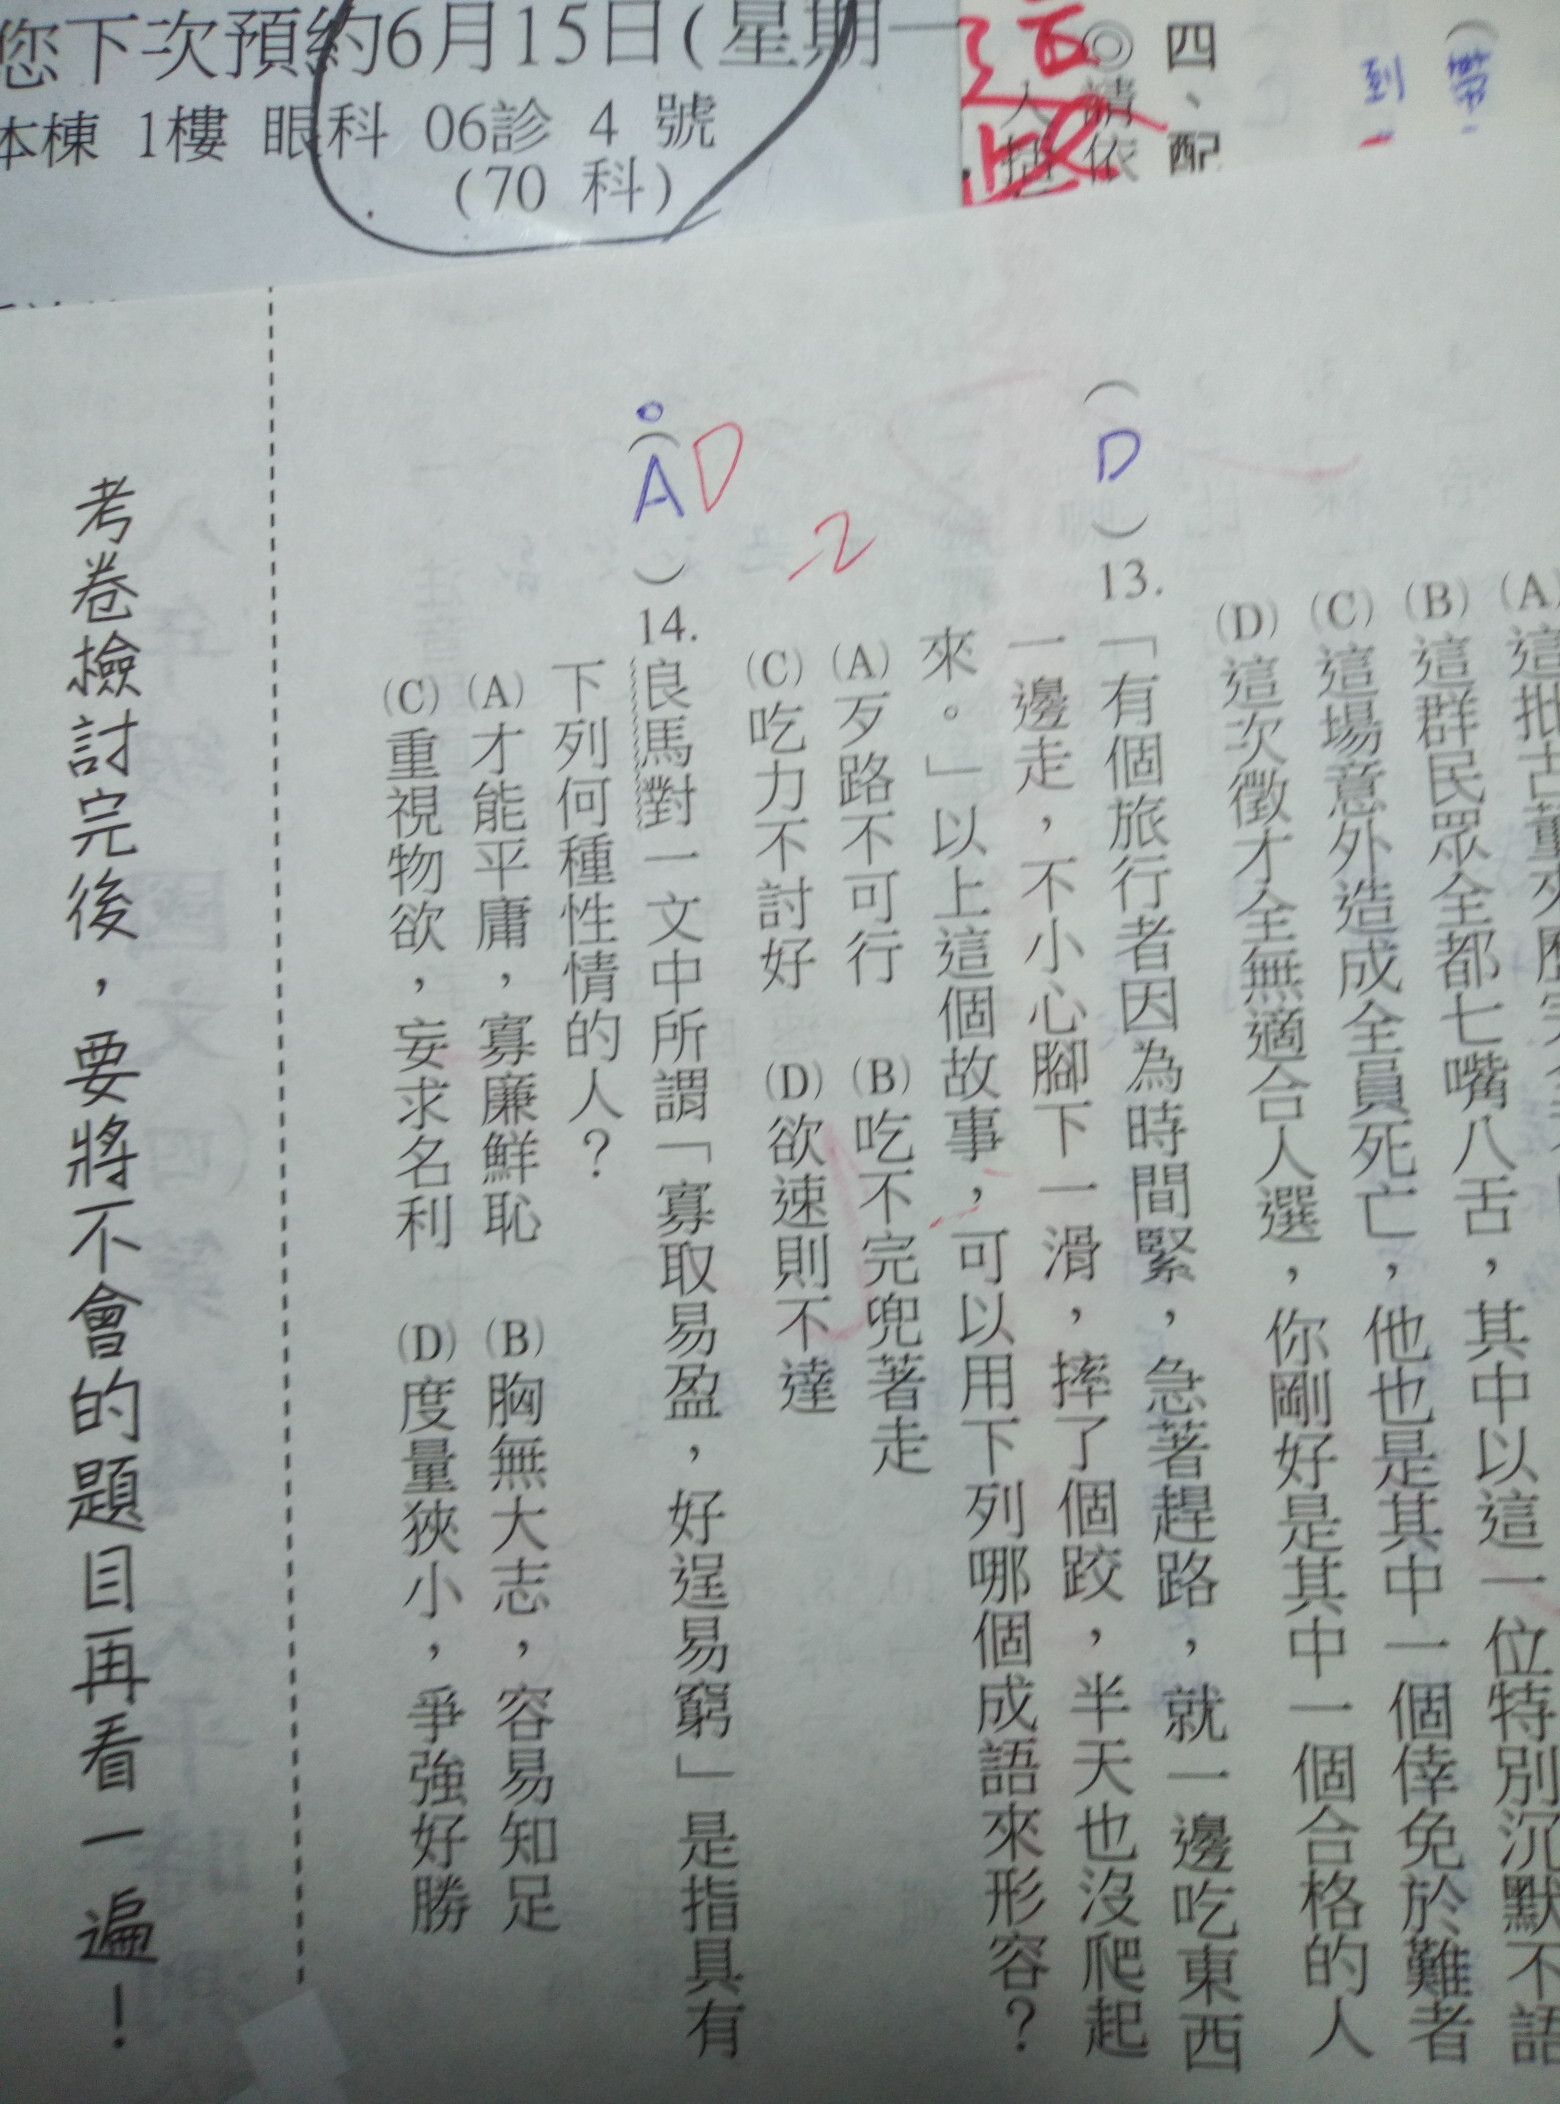 您下次預約6月15日(星期一
本棟 1樓 眼科 06診 4 號
(70 科)
四、配
◎請依
到
(A)這批古董來歷
其中以這一位特別沉默不語
(B)這群民眾全都七嘴八舌，
(C)這場意外造成全員死亡，他也是其中一個倖免於難者
(D)這次徵才全無適合人選，你剛好是其中一個合格的人
(D)13.「有個旅行者因為時間緊，急著趕路，就一邊吃東西
一邊走，不小心腳下一滑，摔了個跤，半天也沒爬起
來。」以上這個故事，可以用下列哪個成語來形容？
(A)歹路不可行 (B)吃不完兜著走
(C)吃力不討好 (D)欲速則不達
-2
D
(A)14.良馬對一文中所謂「寡取易盈，好逞易窮」是指具有
下列何種性情的人？
(A)才能平庸，寡廉鮮恥 (B)胸無大志，容易知足
(C)重視物欲，妄求名利 (D)度量狹小，爭強好勝
考卷檢討完後，要將不會的題目再看一遍！